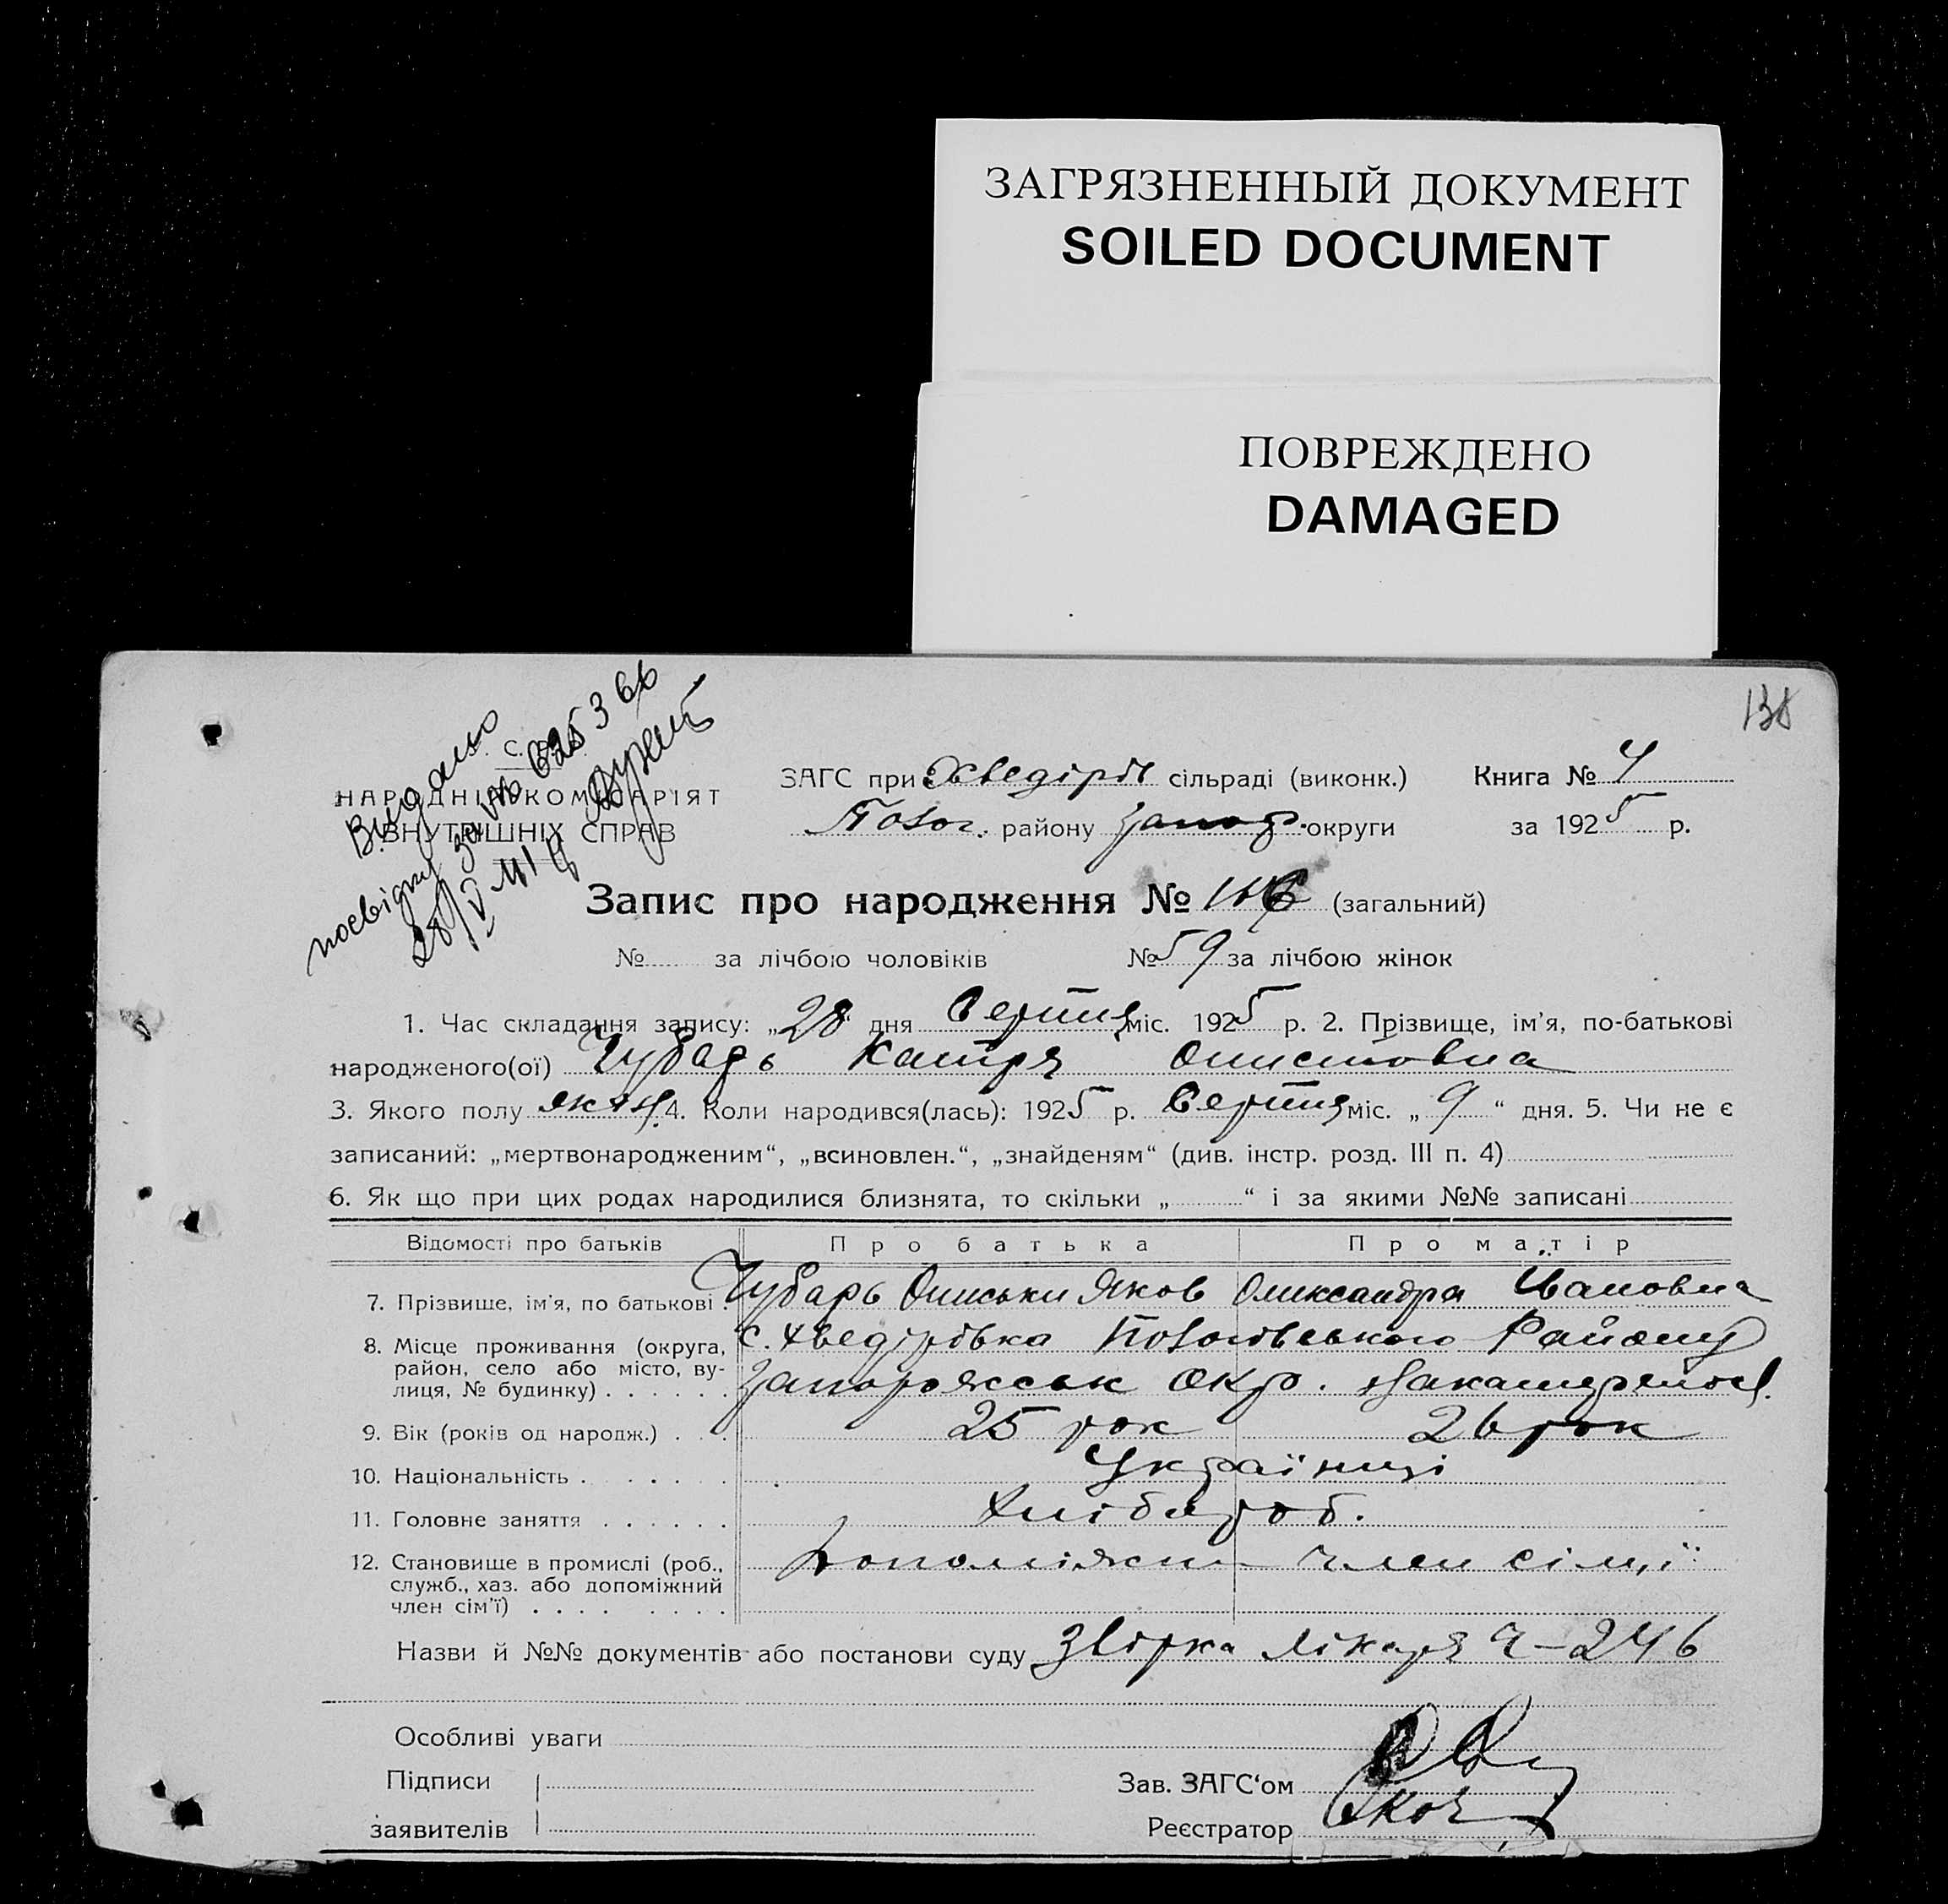 ЗАГРЯЗНЕННЫЙ ДОКУМЕНТ
SOILED DOCUMENT
ПОВРЕЖДЕНО
DAMAGED
138
Видано
посвідку за №
28/V 41 р
С.
НАРОДНІЙ КОМІСАРІЯТ
ВНУТРІШНІХ СПРАВ
ЗАГС при Хведірів сільраді (виконк.) Книга № 4
району Запор. округи за 1925 р.
Запис про народження № (загальний)
№ за лічбою чоловіків № 59 за лічбою жінок
1. Час складання запису: „28“ дня Серпня міс. 1925 р. 2. Прізвище, ім'я, по-батькові
народженого(ої) Чубарь Катря Онистовна
3. Якого полу жін. 4. Коли народився(лась): 1925 р. Серпня міс. „9“ дня. 5. Чи не є
записаний: „мертвонародженим“, „всиновлен.“, „знайденям“ (див. інстр. розд. III п. 4)
6. Як що при цих родах народилися близнята, то скільки „ “ і за якими №№ записані
Відомості про батьків Про батька Про матір
7. Прізвише, ім'я, по батькові Чубарь Яков Олександра Івановна
8. Місце проживання (округа, район, село або місто, вулиця, № будинку) с. Хведірівка Району
Запоріжськ Окр.
9. Вік (років од народж.) 25 рок 26 рок
10. Національність Українці
11. Головне заняття Хлібароб.
12. Становище в промислі (роб., служб., хаз. або допоміжний член сім'ї) Допоміжни член сімʼї
Назви й №№ документів або постанови суду Звірка Лікаря Ч-246
Особливі уваги
Підписи
заявителів
Зав. ЗАГС'ом
Реєстратор